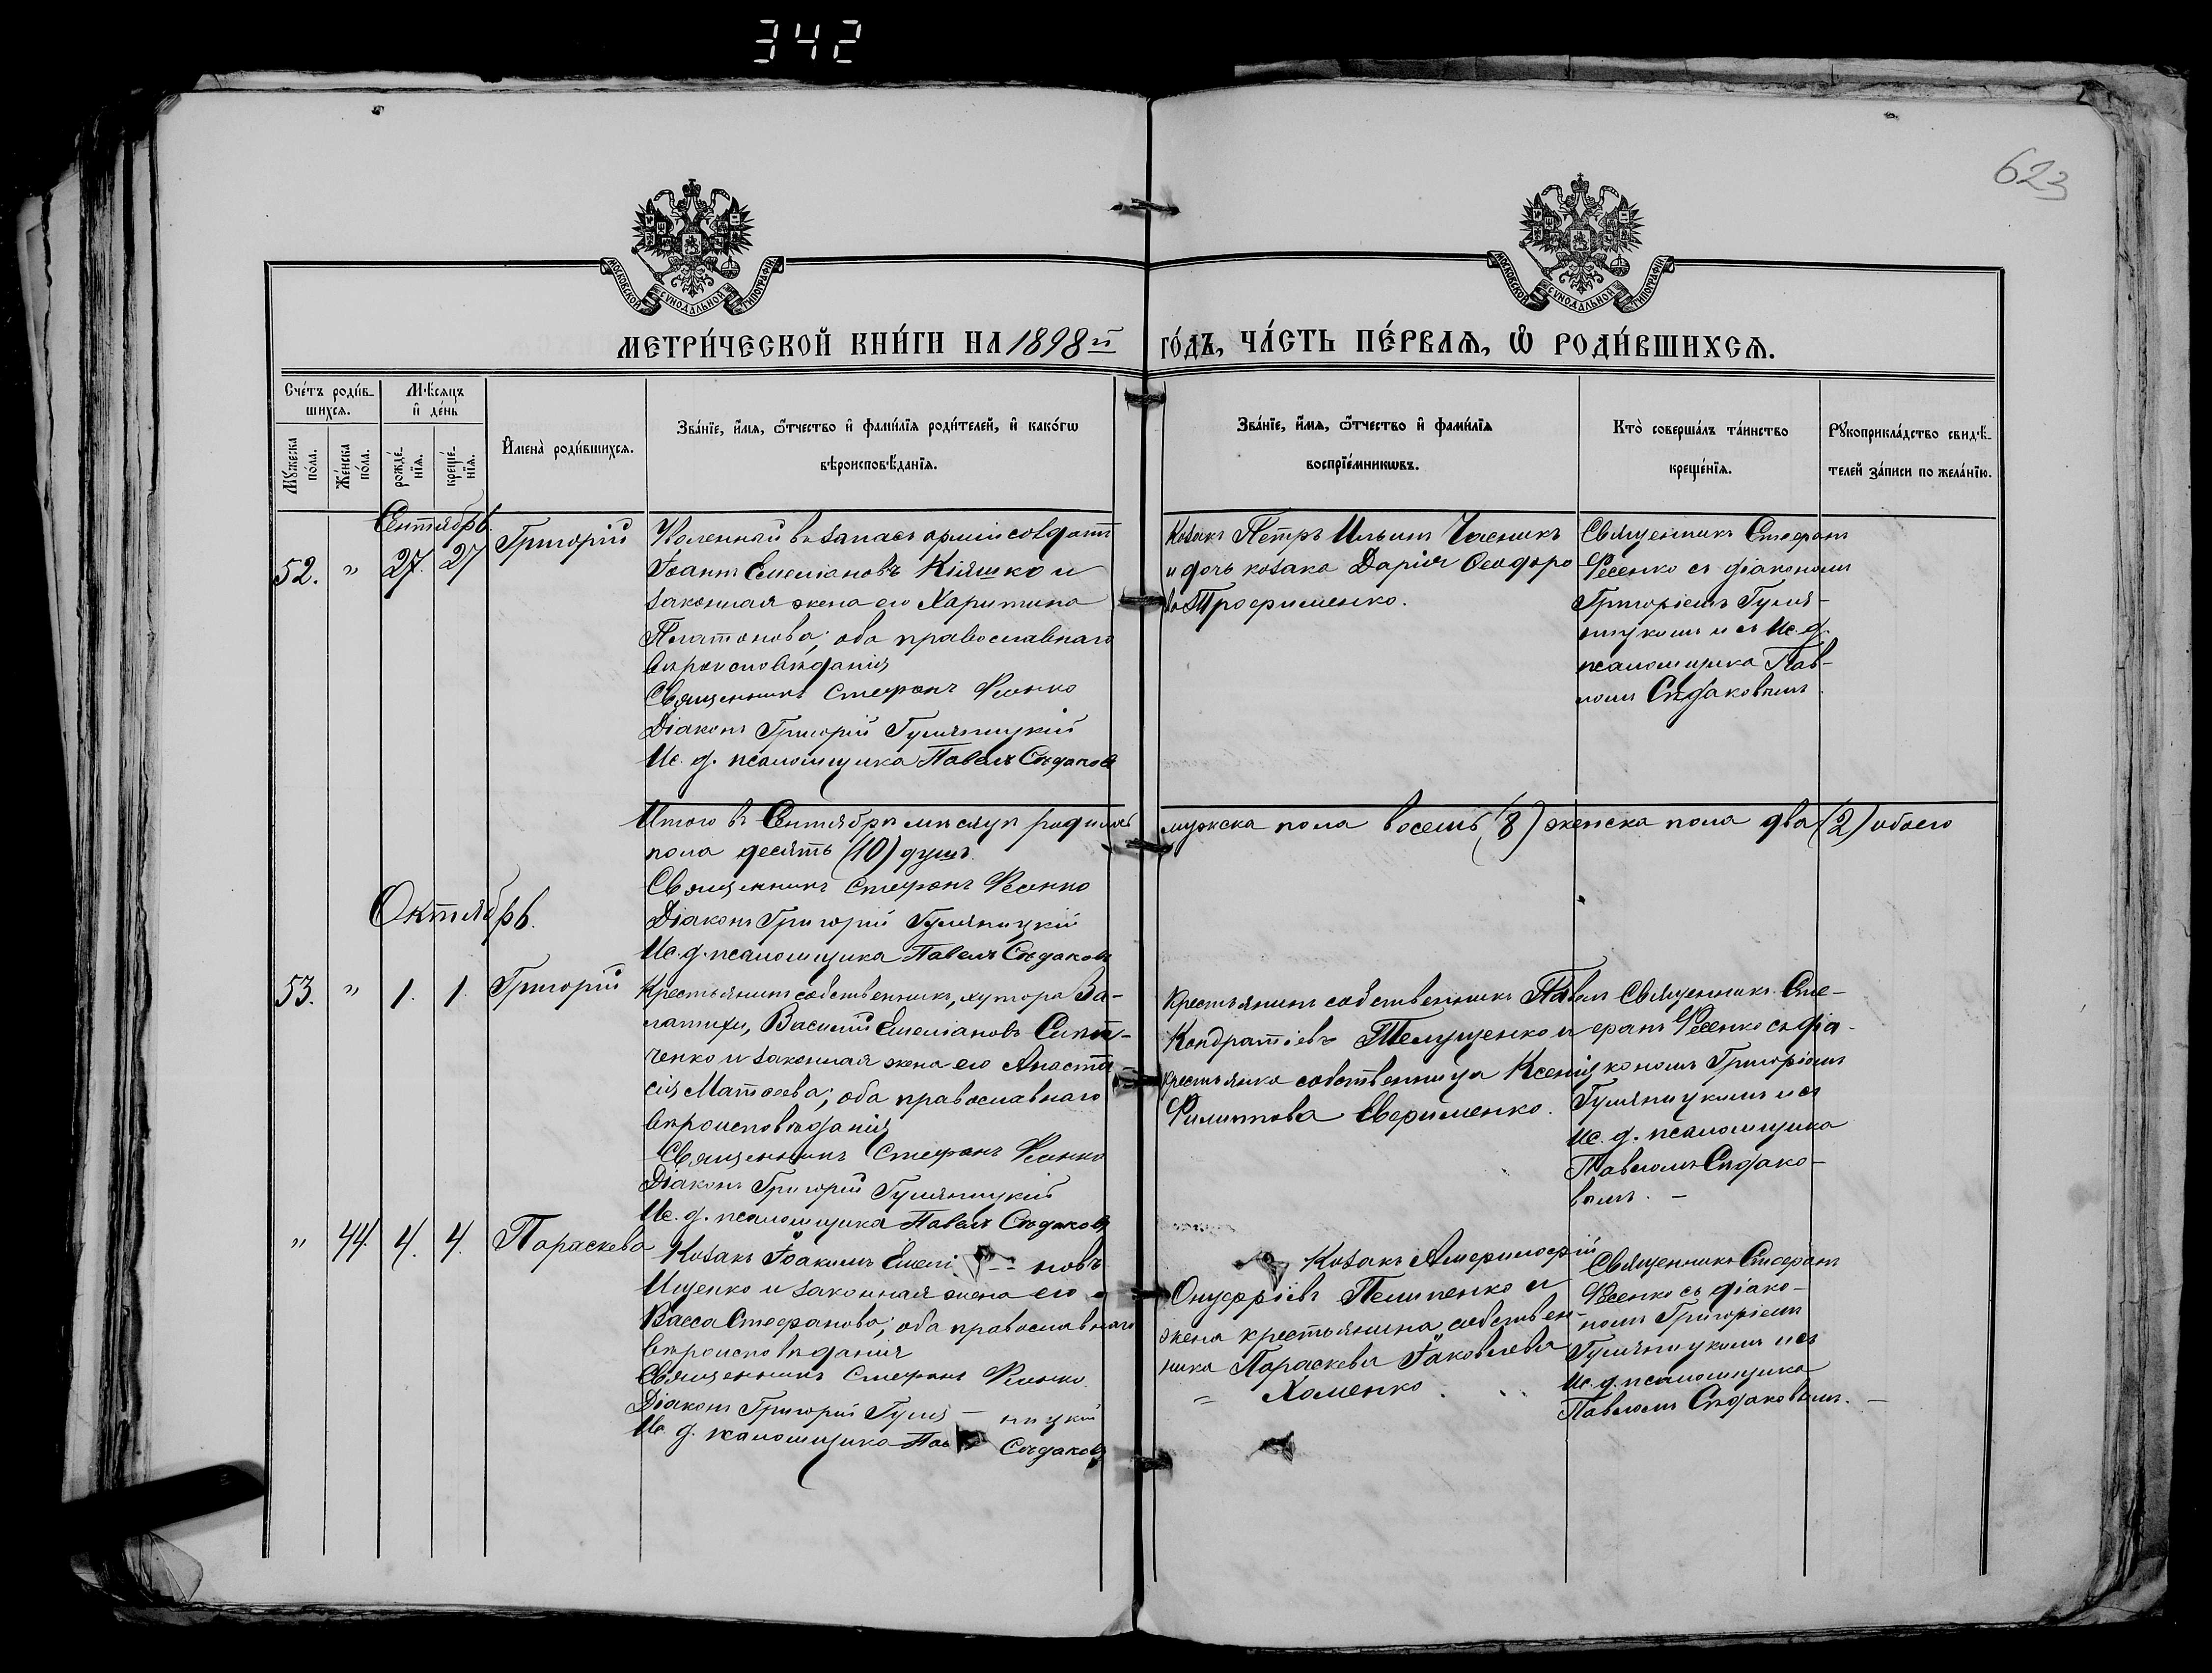 342
623
МОСКОВСКОЙ СУНОДАЛЬНОЙ ТИПОГРАФІИ
МОСКОВСКОЙ СУНОДАЛЬНОЙ ТИПОГРАФІИ
МЕТРИ́ЧЕСКОЙ КНИ́ГИ НА 1898й ГО́ДЪ, ЧА́СТЬ ПЕ́РВАѦ, Ѡ҆ РОДИ́ВШИХСѦ.
Сче́тъ роди́в-
шихсѧ.
Мꙋ́жеска по́ла.
Же́нска по́ла.
Мѣ́сѧцъ
и҆ де́нь
рожде́-
нїѧ.
креще́-
нїѧ.
И҆мена̀ роди́вшихсѧ.
Зва́нїе, и҆́мѧ, ѻ҆́тчество и҆ фами́лїѧ роди́телей, и҆ како́гѡ
вѣроисповѣ́данїѧ.
Зва́нїе, и҆́мѧ, ѻ҆́тчество и҆ фами́лїѧ
воспрїе́мникѡвъ.
Кто̀ соверша́лъ та́инство
креще́нїѧ.
Рꙋкоприкла́дство свидѣ́-
телей за́писи по жела́нїю.
Сентябрь.
52. " 27. 27 Григорій
Уволенный въ запасъ арміи солдатъ
Іоаннъ Емеліановъ Кіяшко и
законная жена его Харитина
Платонова; оба православнаго
вѣроисповѣданія
Священникъ Стефанъ Фесенко
Діаконъ Григорій Гуляницкій
Ис. д. псаломщика Павелъ Сѣдаковъ
Козакъ Петръ Ильинъ Часникъ
и дочь козака Дарія Ѳеодоро
ва Трофименко.
Священникъ Стефанъ
Фесенко съ діакономъ
Григоріемъ Гуля-
ницкимъ и съ Ис. д.
псаломщика Пав-
ломъ Сѣдаковымъ.
Итого въ Сентябрѣ мѣсяцѣ родилось мужска пола восемь (8) женска пола два (2) обоего
пола десять (10) душъ.
Священникъ Стефанъ Фесенко
Діаконъ Григорій Гуляницкій
Ис. д. псаломщика Павелъ Сѣдаковъ
Октябрь.
53. " 1. 1. Григорій
Крестьянинъ собственникъ, хутора За-
латихи, Василій Емеліановъ
и законная жена его Анаста
сія Матѳеева; оба православнаго
вѣроисповѣданія
Священникъ Стефанъ Фесенко
Діаконъ Григорій Гуляницкій
Ис. д. псаломщика Павелъ Сѣдаковъ
Крестьянинъ собственникъ Павелъ
Кондратіевъ Телущенко и
крестьянка собственница Ксенія
Филиппова Еверименко.
Священникъ Сте-
фанъ Фесенко съ діа-
кономъ Григоріемъ
Гуляницкимъ и съ
Ис. д. псаломщика
Павломъ Сѣдако-
вымъ. -
" 44. 4. 4. Параскева
Козакъ Іоакимъ Емелі -- новъ
Ищенко и законная жена его
Васса Стефанова; оба православнаго
вѣроисповѣданія
Священникъ Стефанъ Фесенко.
Діаконъ Григорій Гуля - ницкій
Ис. д. псаломщика Пав Сѣдаковъ
Козакъ
Онуфріевъ Пелипенко и
жена крестьянина собствен-
ника Параскева Іаковлева
Хоменко.
Священникъ Стефанъ
Фесенко съ діако-
номъ Григоріемъ
Гуляницкимъ и съ
Ис. д. псаломщика
Павломъ Сѣдаковымъ. -